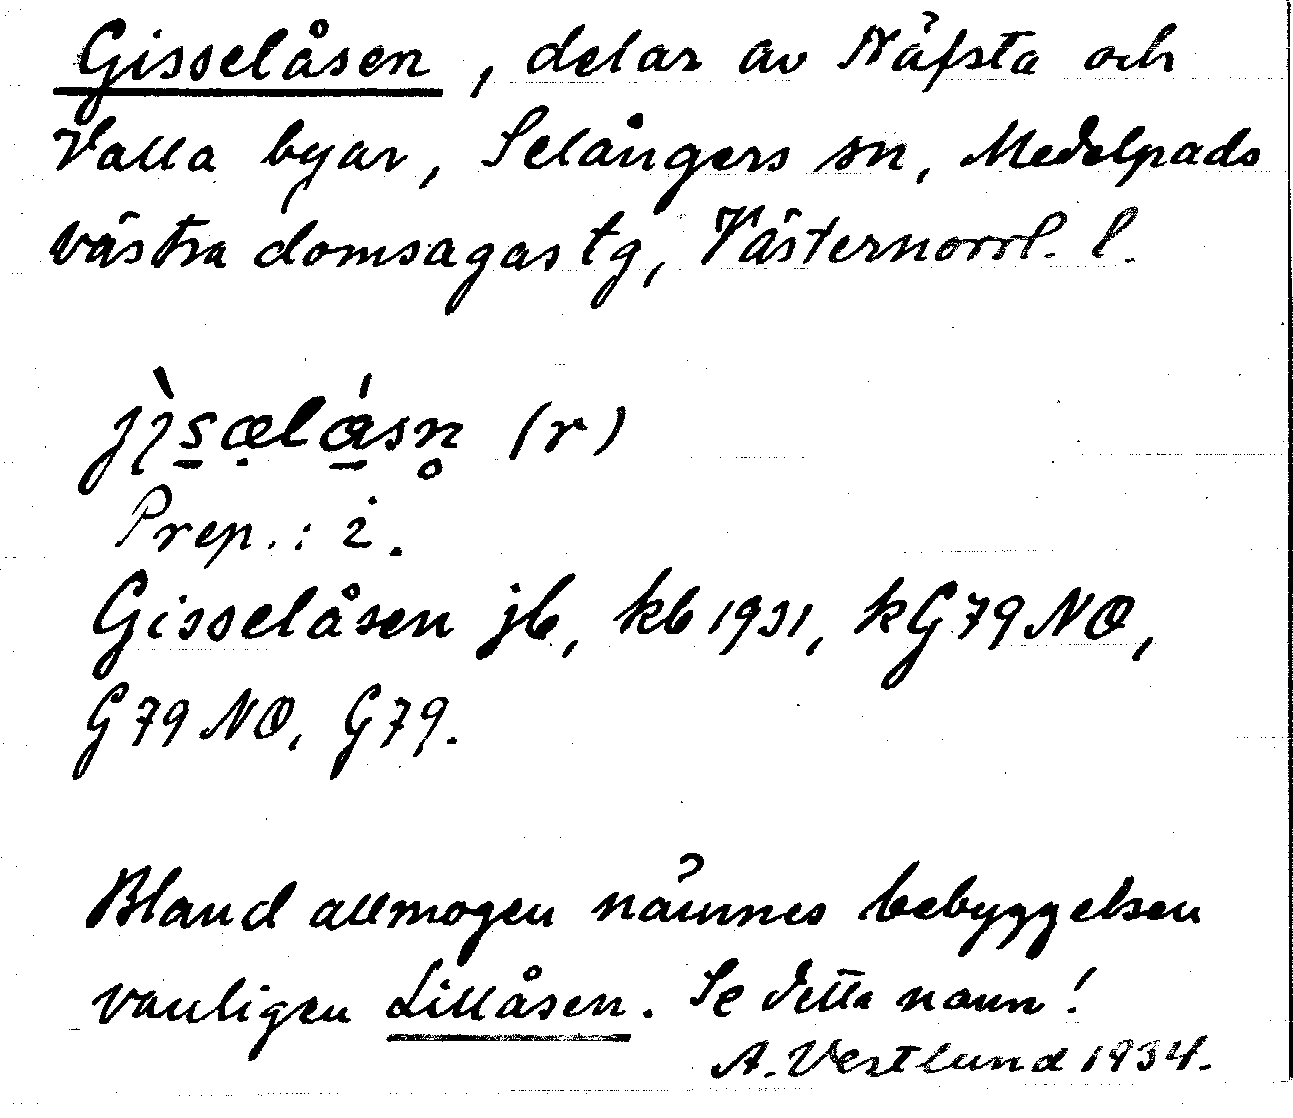 Gisselåsen, delar av Näfsta och
Valla byar, Selångers sn, Medelpads
västra domsagas tg, Västernorrl. l.
jı̀sælåsn̥ (r)
Prep.: i.
Gisselåsen jb, kb 1931, kG79NO,
G79NO, G79.
Bland allmogen nämnes bebyggelsen
vanligen Lillåsen. Se detta namn!
A. Vestlund 1934.